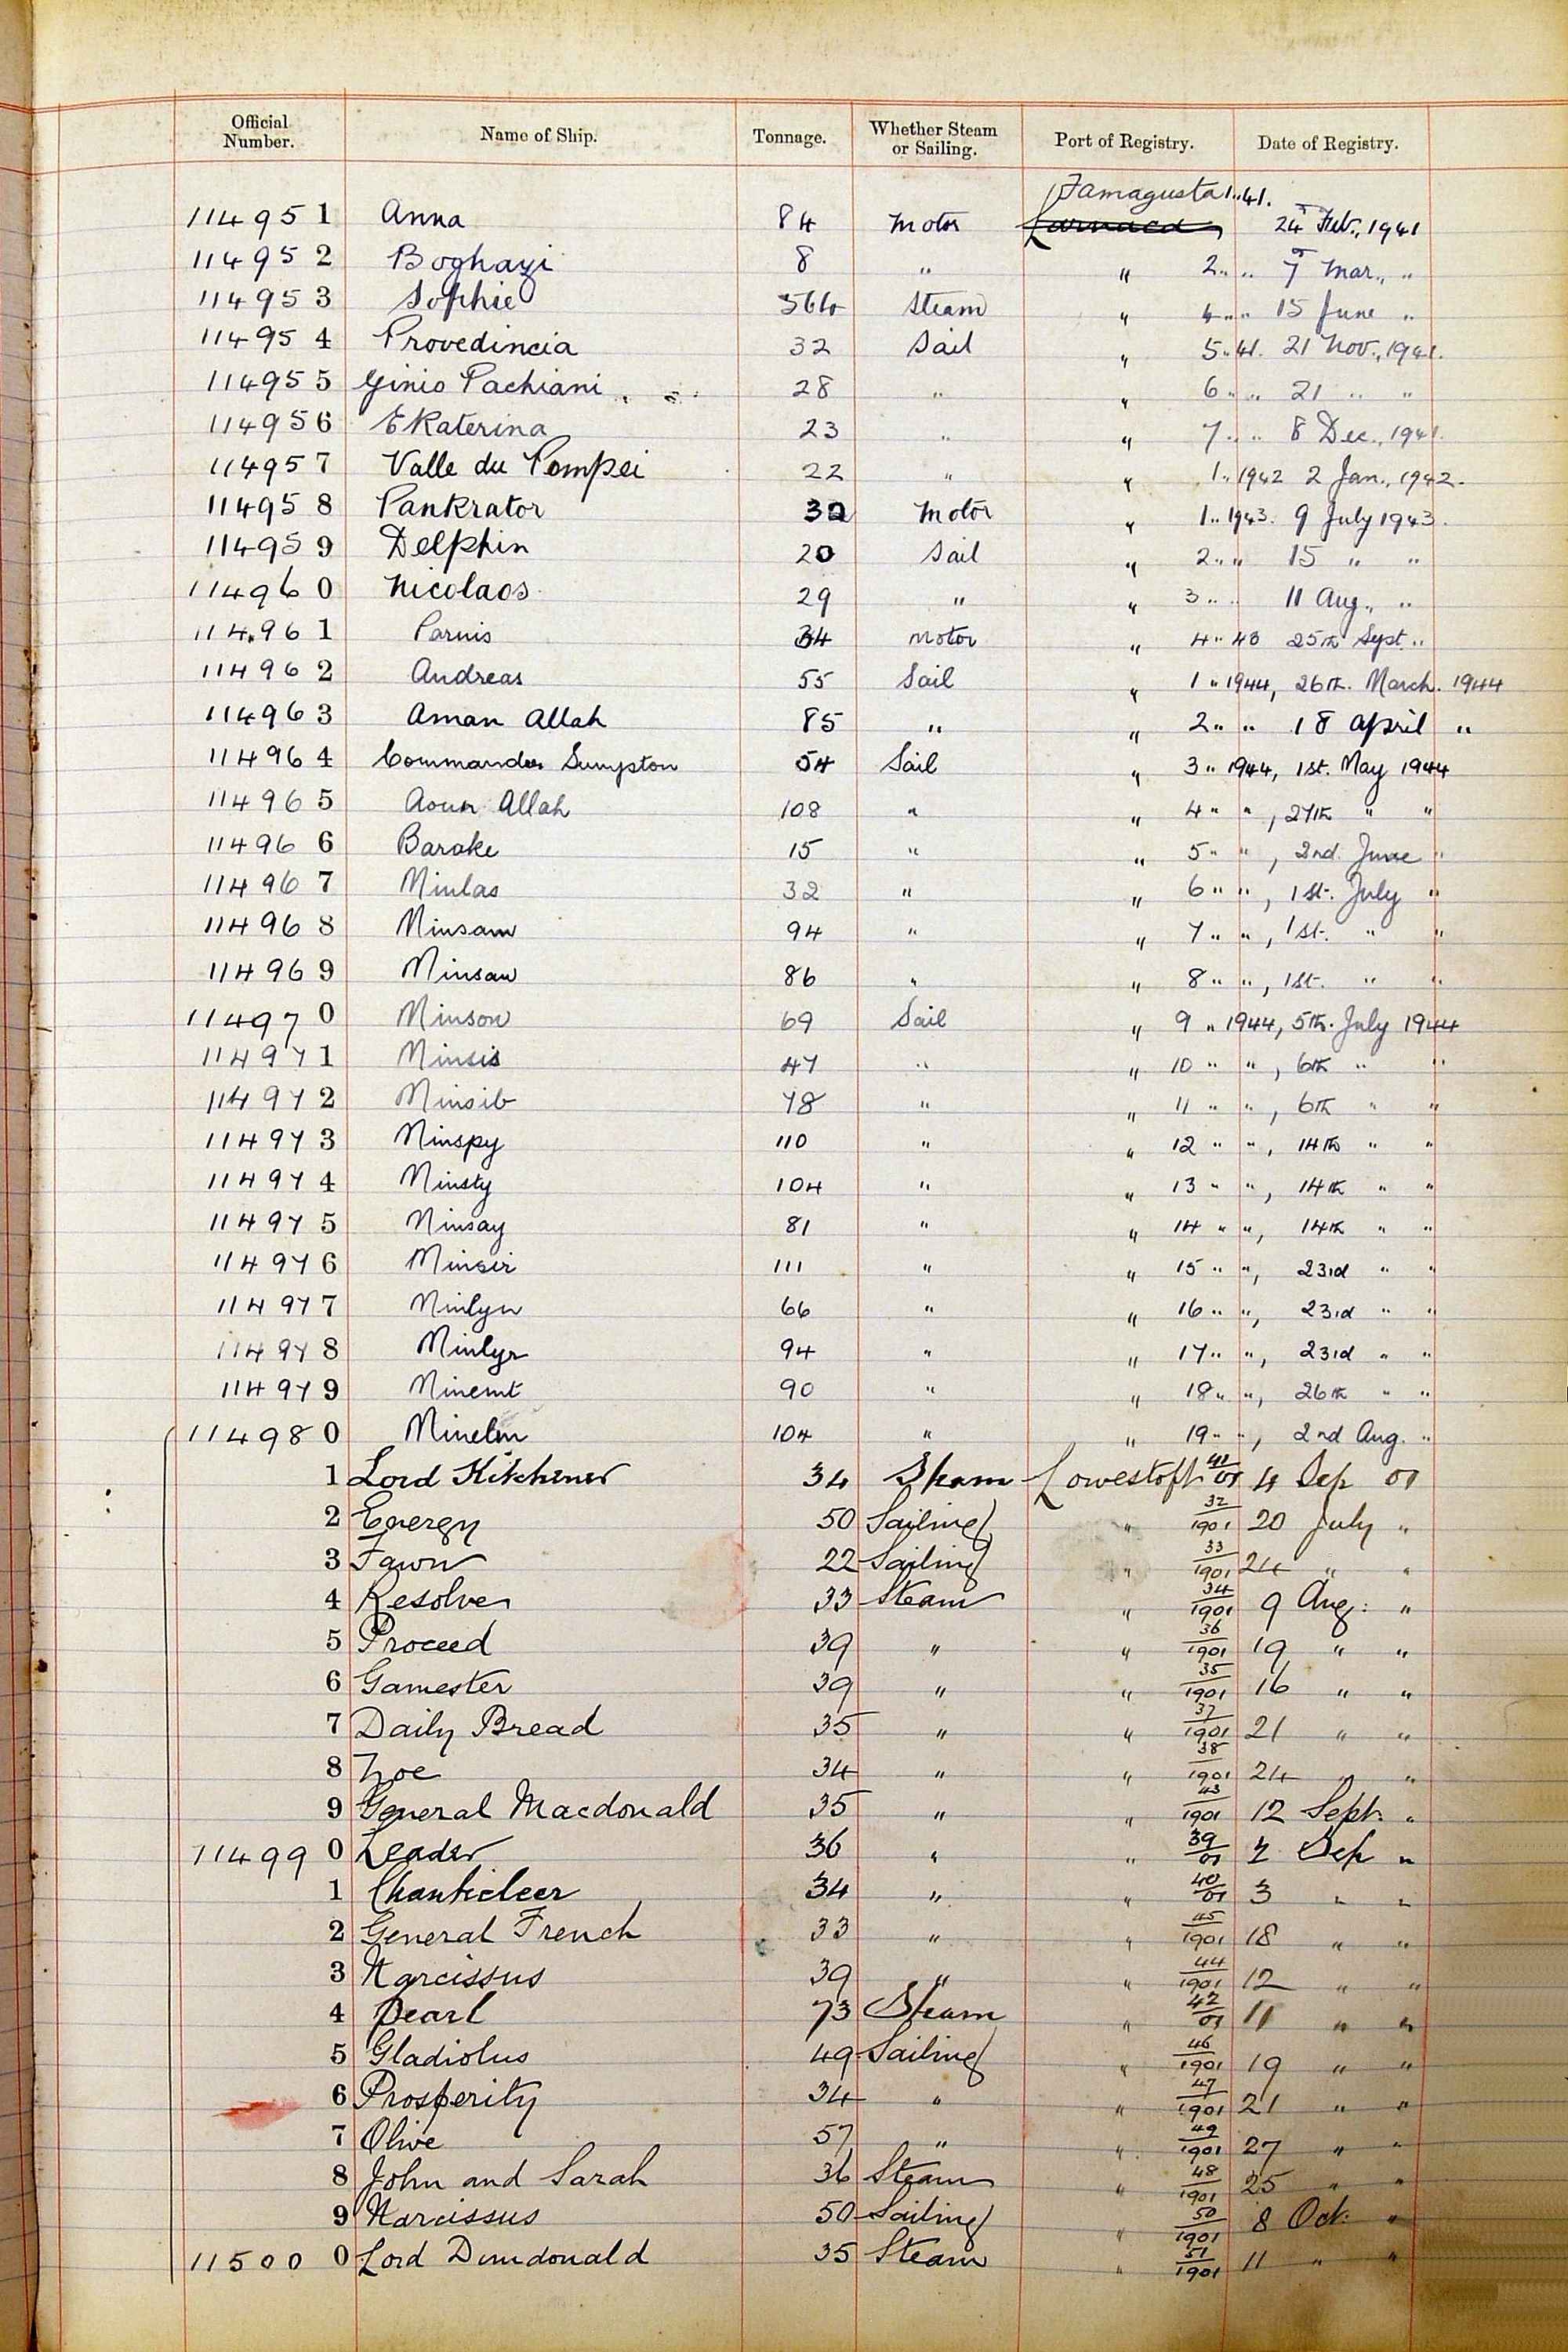 Official Number. Name of Ship. Tonnage. Whether Steam or Sailing. Port of Registry. Date of Registry.
Famagusta 1..41.
114951 Anna 84 Motor Larnaca 24th Feb., 1941
114952 Boghazi 8 " " 2.. .. 7th Mar., "
114953 Sophie Steam " 4.. .. 15 June "
114954 Provedincia 32 Sail " 5..41. 21 Nov., 1941.
114955 Ginio Pachiani 28 " " 6.. .. 21 " "
114956 Ekaterina 23 " " 7.. .. 8 Dec., 1941.
114957 Valle du Pompei 22 " " 1..1942 2 Jan., 1942.
114958 Pankrator 32 Motor " 1..1943. 9 July 1943.
114959 Delphin 20 Sail " 2.. " 15 " "
114960 Nicolaos 29 " " 3.. .. 11 Aug., "
114961 Parnis 34 Motor " 4..43 25th Sept. "
114962 Andreas 55 Sail " 1..1944, 26th. March. 1944
114963 Aman Allah 85 " " 2.. " 18 April "
114964 Commander 54 Sail " 3..1944, 1st. May 1944
114965 Aoun Allah 108 " " 4.. ", 27th " "
114966 Barake 15 " " 5.. ", 2nd. June "
114967 Minlas 32 " " 6.. ", 1st. July "
114968 Minsam 94 " " 7.. ", 1st. " "
114969 Minsaw 86 " " 8.. ", 1st. " "
114970 Minson 69 Sail " 9..1944, 5th. July 1944
114971 Minsis 47 " " 10.. ", 6th " "
114972 Minsib 78 " " 11.. ", 6th " "
114973 Minspy 110 " " 12.. ", 14th " "
114974 Minsty 104 " " 13.. ", 14th " "
114975 Minsay 81 " " 14.. ", 14th " "
114976 Minsir 111 " " 15.. ", 23rd " "
114977 Minlyn 66 " " 16.. ", 23rd " "
114978 Minlyr 94 " " 17.. ", 23rd " "
114979 Minemt 90 " " 18.. ", 26th " "
114980 Minelm 104 " " 19.. ", 2nd Aug. "
1 Lord Kitchener 34 Steam Lowestoft 41/01 4 Sep 01
2 Energy 50 Sailing " 32/1901 20 July "
3 Fawn 22 Sailing " 33/1901 24 " "
4 Resolve 33 Steam " 34/1901 9 Aug: "
5 Proceed 39 " " 36/1901 19 " "
6 Gamester 39 " " 35/1901 16 " "
7 Daily Bread 35 " " 37/1901 21 " "
8 Zoe 34 " " 38/1901 24 " "
9 General Macdonald 35 " " 43/1901 12 Sept. "
114990 Leader 36 " " 39/01 2 Sep "
1 Chanticleer 34 " " 40/01 3 " "
2 General French 33 " " 45/1901 18 " "
3 Narcissus 39 " " 44/1901 12 " "
4 Pearl 73 Steam " 42/01 11 " "
5 Gladiolus 49 Sailing " 46/1901 19 " "
6 Prosperity 34 " " 47/1901 21 " "
7 Olive 57 " " 49/1901 27 " "
8 John and Sarah 36 Steam " 48/1901 25 " "
9 Narcissus 50 Sailing " 50/1901 8 Oct. "
115000 Lord Dundonald 35 Steam " 51/1901 11 " "